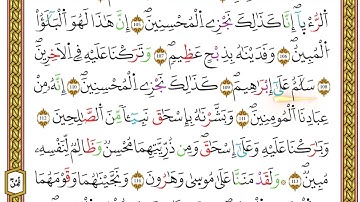 الرُّءْيَا إِنَّا كَذَٰلِكَ نَجْزِي الْمُحْسِنِينَ ١٠٥ إِنَّ هَٰذَا لَهُوَ الْبَلَٰٓؤُا
الْمُبِينُ ١٠٦ وَفَدَيْنَٰهُ بِذِبْحٍ عَظِيمٍ ١٠٧ وَتَرَكْنَا عَلَيْهِ فِي الْأٓخِرِينَ
١٠٨ سَلَٰمٌ عَلَىٰٓ إِبْرَٰهِيمَ ١٠٩ كَذَٰلِكَ نَجْزِي الْمُحْسِنِينَ ١١٠ إِنَّهُۥ مِنْ
عِبَادِنَا الْمُؤْمِنِينَ ١١١ وَبَشَّرْنَٰهُ بِإِسْحَٰقَ نَبِيٓـًٔا مِّنَ الصَّٰلِحِينَ ١١٢
وَبَٰرَكْنَا عَلَيْهِ وَعَلَىٰٓ إِسْحَٰقَ وَمِن ذُرِّيَّتِهِمَا مُحْسِنٌ وَظَالِمٌ لِّنَفْسِهِۦ
مُبِينٌ ١١٣ وَلَقَدْ مَنَنَّا عَلَىٰ مُوسَىٰ وَهَٰرُونَ ١١٤ وَنَجَّيْنَٰهُمَا وَقَوْمَهُمَا
ثمن